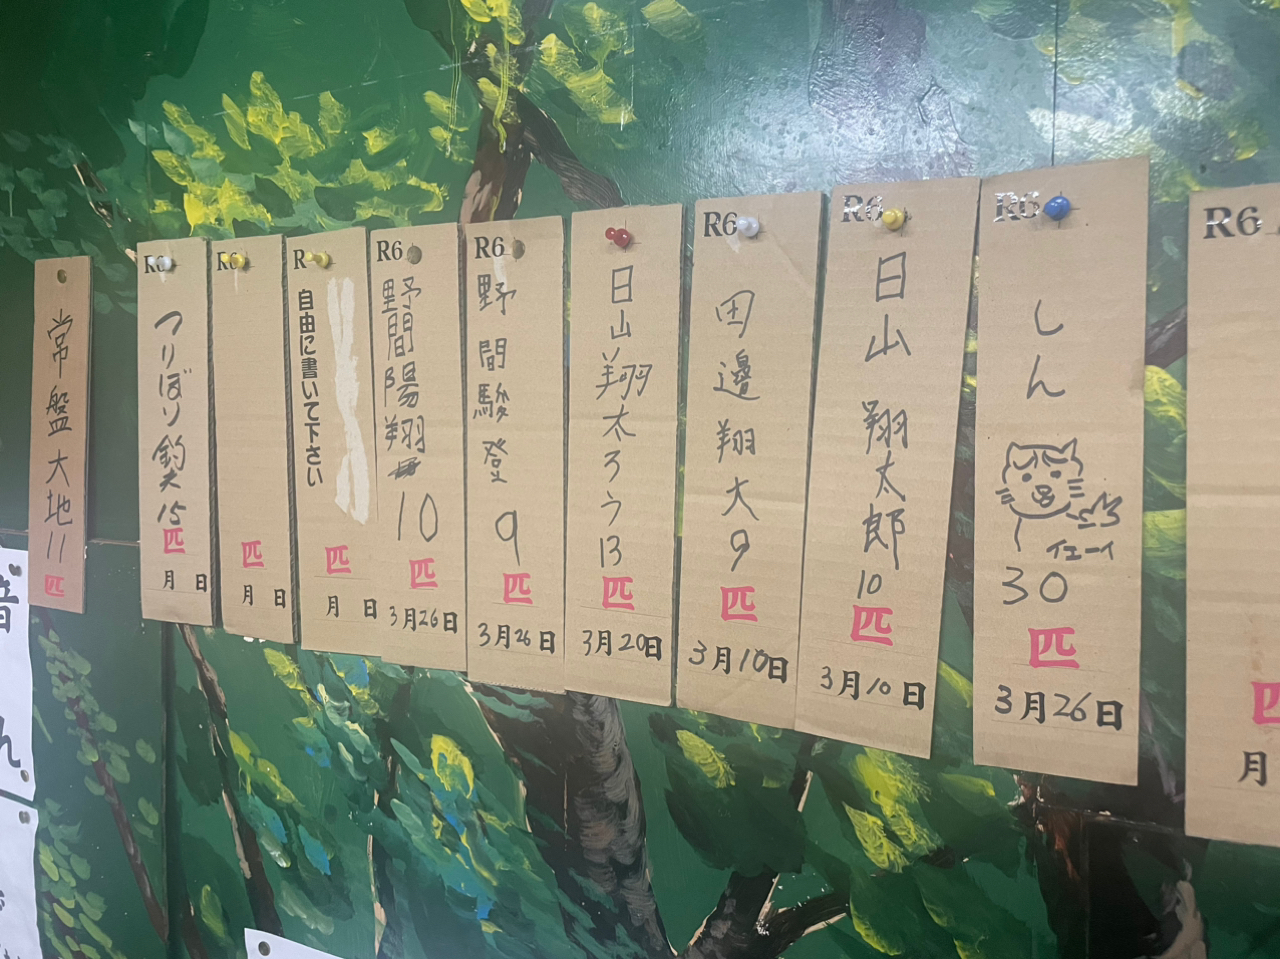 常盤大地11匹
R6
つりぼり釣笑15匹
月 日
R6
匹
月 日
R
自由に書いて下さい
匹
月 日
R6
野間陽翔
10匹
3月26日
R6
野間駿登
9匹
3月26日
日山翔太ろう
13匹
3月20日
R6
田邊翔大
9匹
3月10日
R6
日山翔太郎
10匹
3月10日
R6
しん
イエーイ
30匹
3月26日
R6
匹
月
音
ん